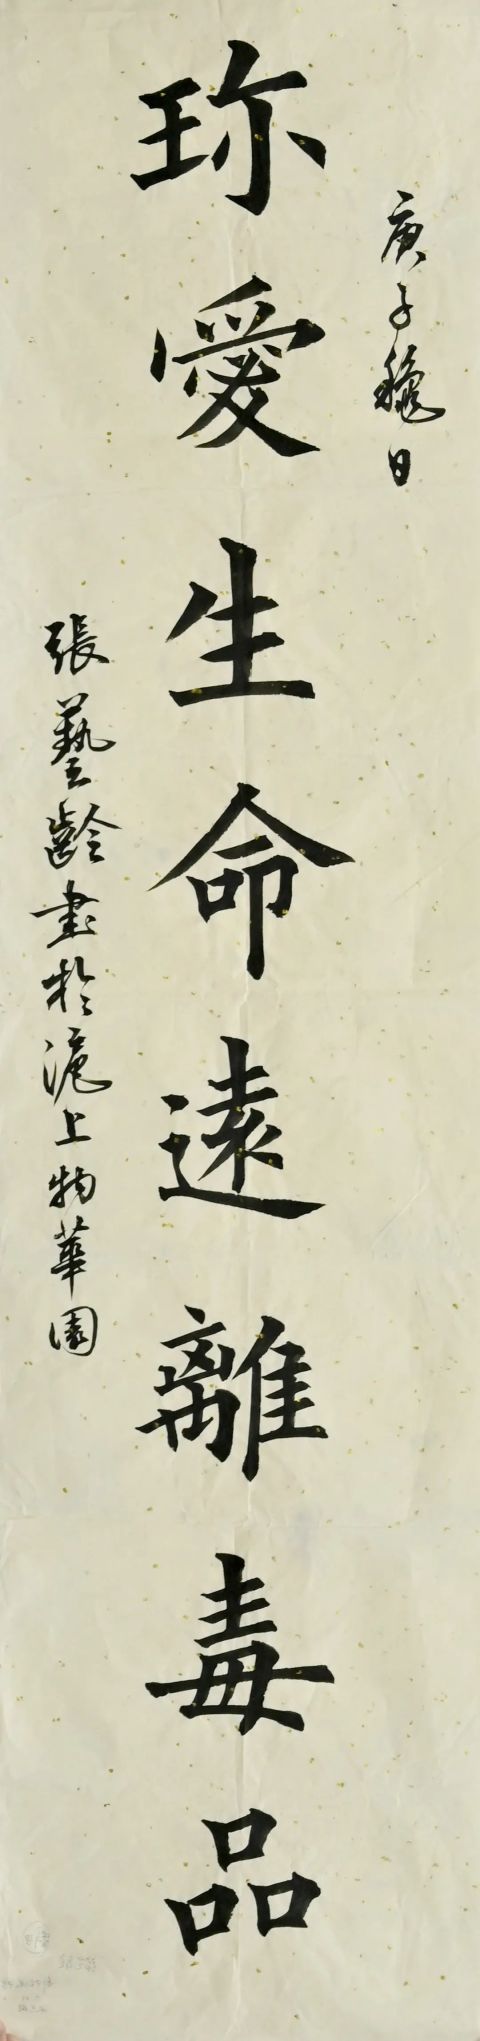 庚子穐日
珎愛生命遠離毒品
張藝齡書於滬上物華園